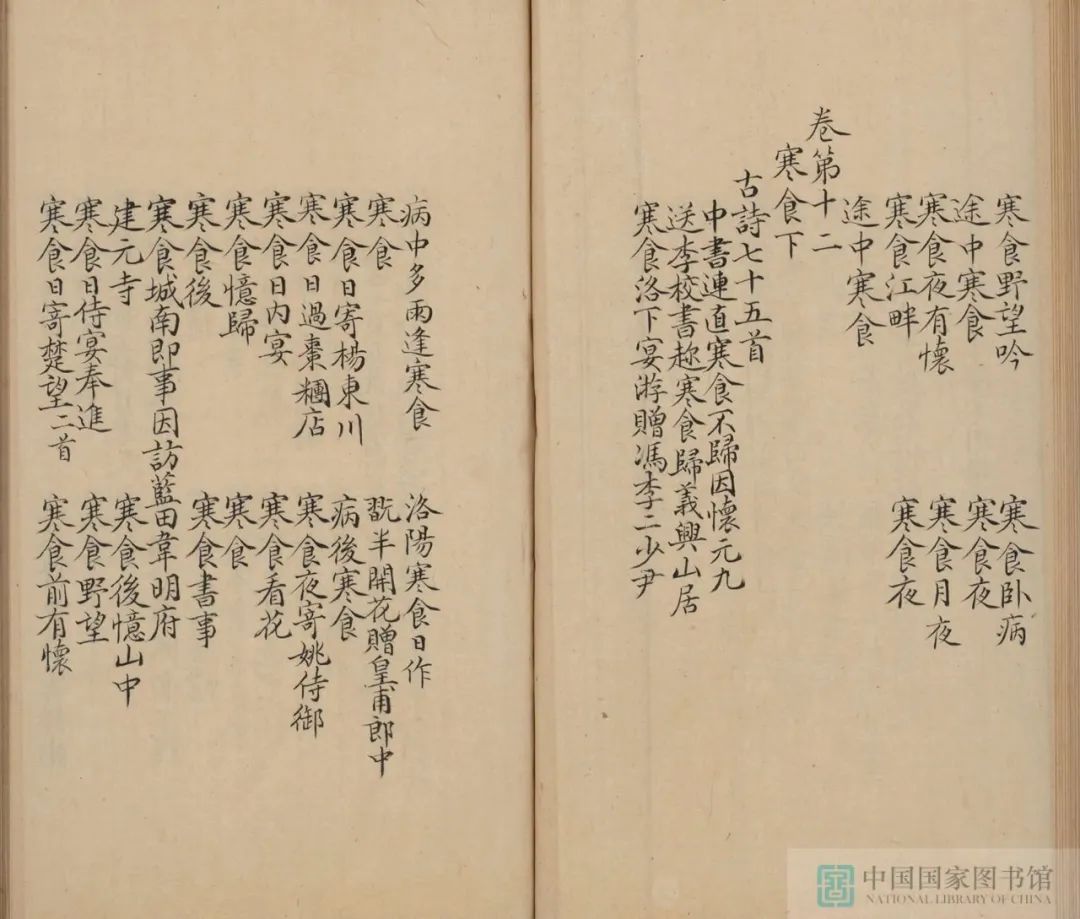 寒食野望吟 寒食卧病
途中寒食 寒食夜
寒食夜有懷 寒食月夜
寒食江畔 寒食夜
途中寒食
卷第十二
寒食下
古詩七十五首
中書連直寒食不歸因懷元九
送李校書趂寒食歸義興山居
寒食洛下宴游贈馮李二少尹
病中多雨逢寒食 洛陽寒食日作
寒食 翫半開花贈皇甫郎中
寒食日寄楊東川 病後寒食
寒食日過棗糰店 寒食夜寄姚侍御
寒食日内宴 寒食看花
寒食憶歸 寒食
寒食後 寒食書事
寒食城南即事因訪藍田韋明府
建元寺 寒食後憶山中
寒食日侍宴奉進 寒食野望
寒食日寄楚望二首 寒食前有懷
中国国家图书馆
NATIONAL LIBRARY OF CHINA